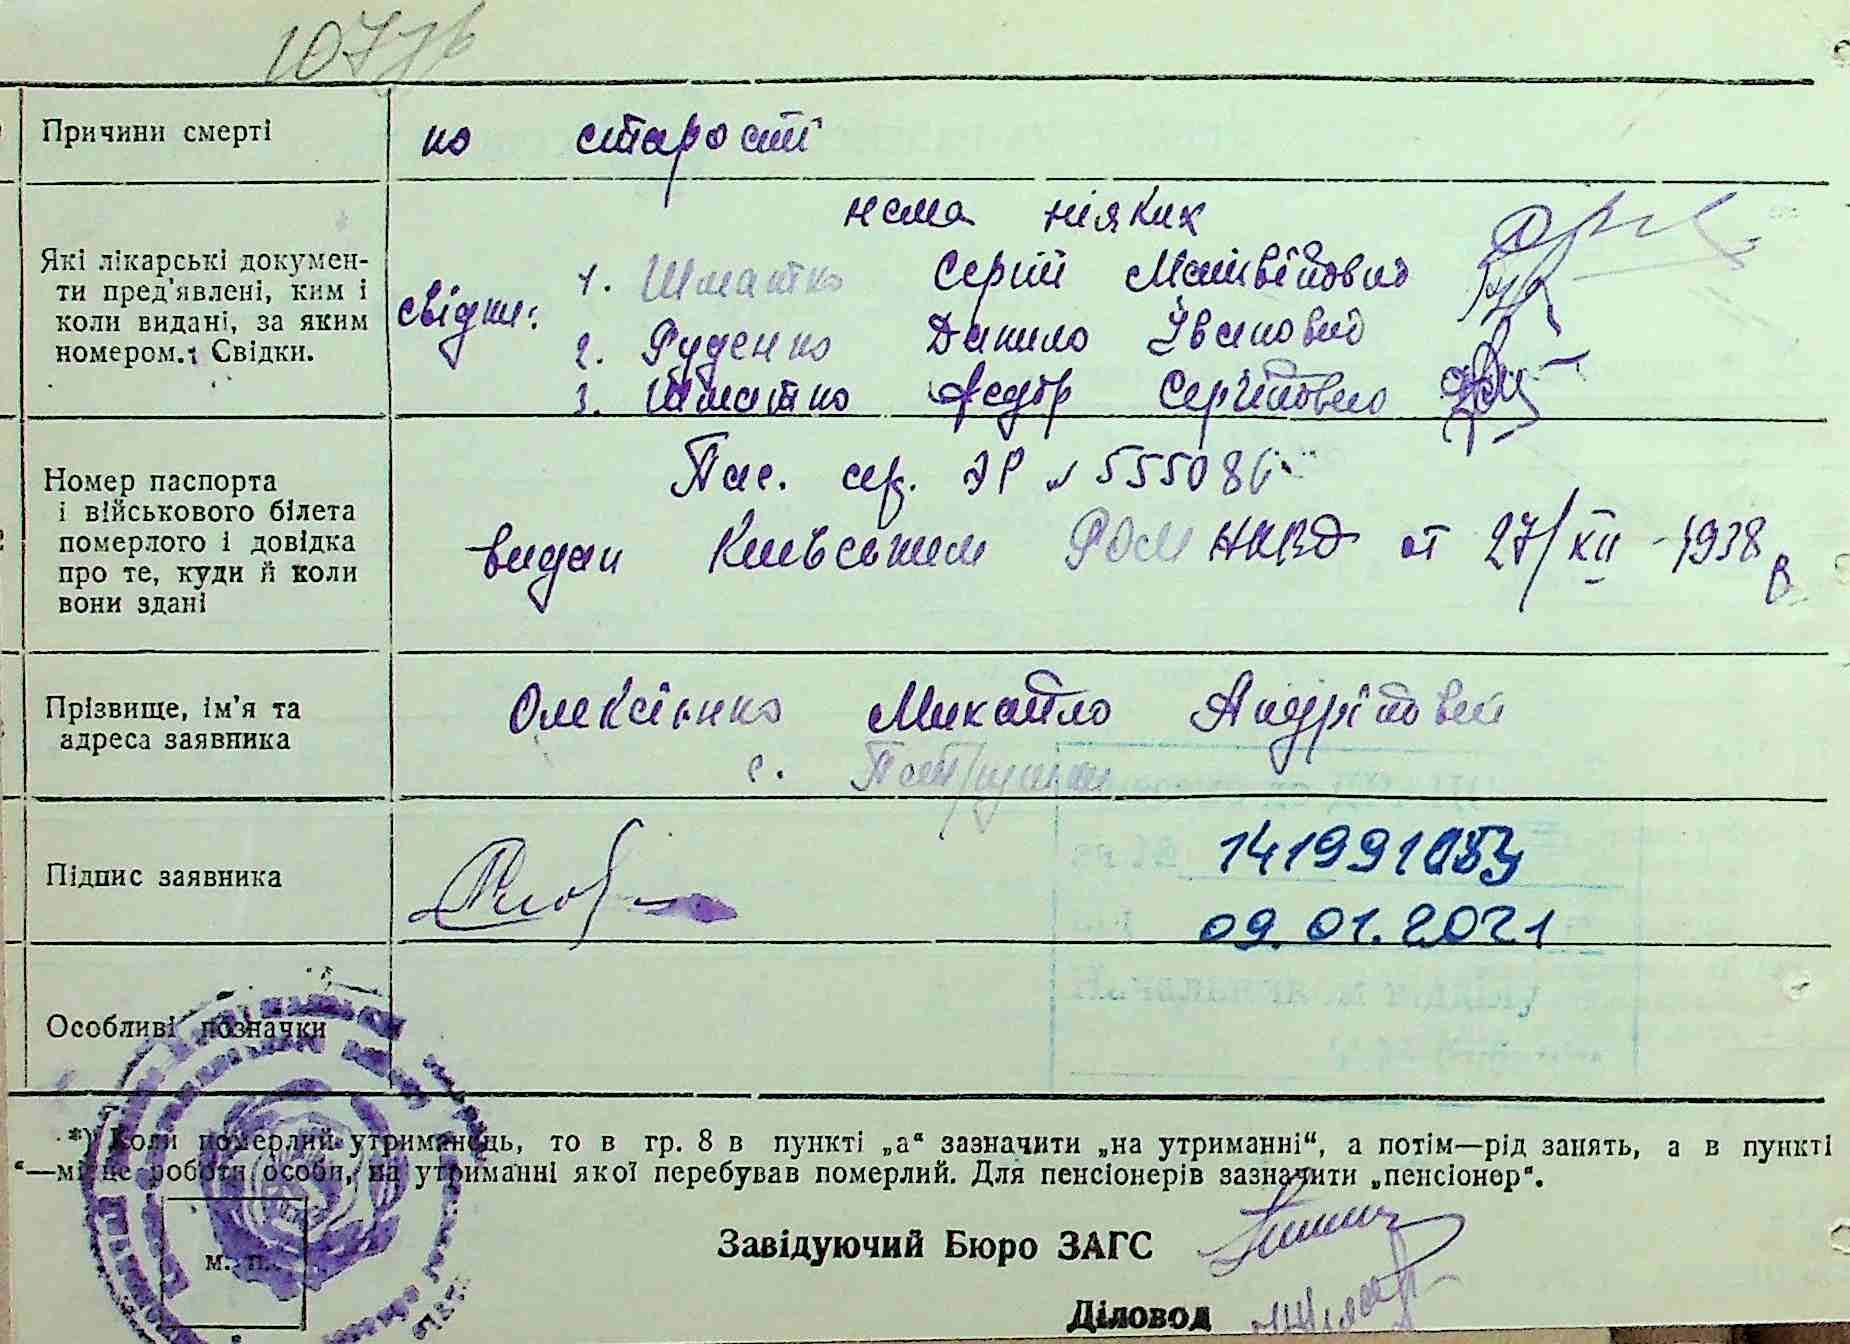 Причини смерті
по старості
нема ніяких
Які лікарські докумен-
ти пред'явлені, ким і
коли видані, за яким
номером. Свідки.
свідки:
1. Шматко Сергій Матвійович
2. Руденко Данило Іванович
3. Шматко Федір Сергійович
Номер паспорта
і військового білета
померлого і довідка
про те, куди й коли
вони здані
Пас. сер. № 555086
видан Київським РОМ НКВД от 27/XII - 1938 р
Прізвище, ім'я та
адреса заявника
Олексієнко Михайло Андрійович
с.
Підпис заявника
09.01.2021
Особливі позначки
*) Коли померлий утриманець, то в гр. 8 в пункті „а“ зазначити „на утриманні“, а потім—рід занять, а в пункті
“—місце роботи особи, на утриманні якої перебував померлий. Для пенсіонерів зазначити „пенсіонер“.
м. п.
Завідуючий Бюро ЗАГС
Діловод